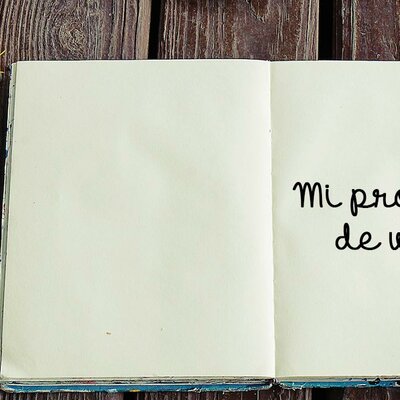 Mi pro
de v